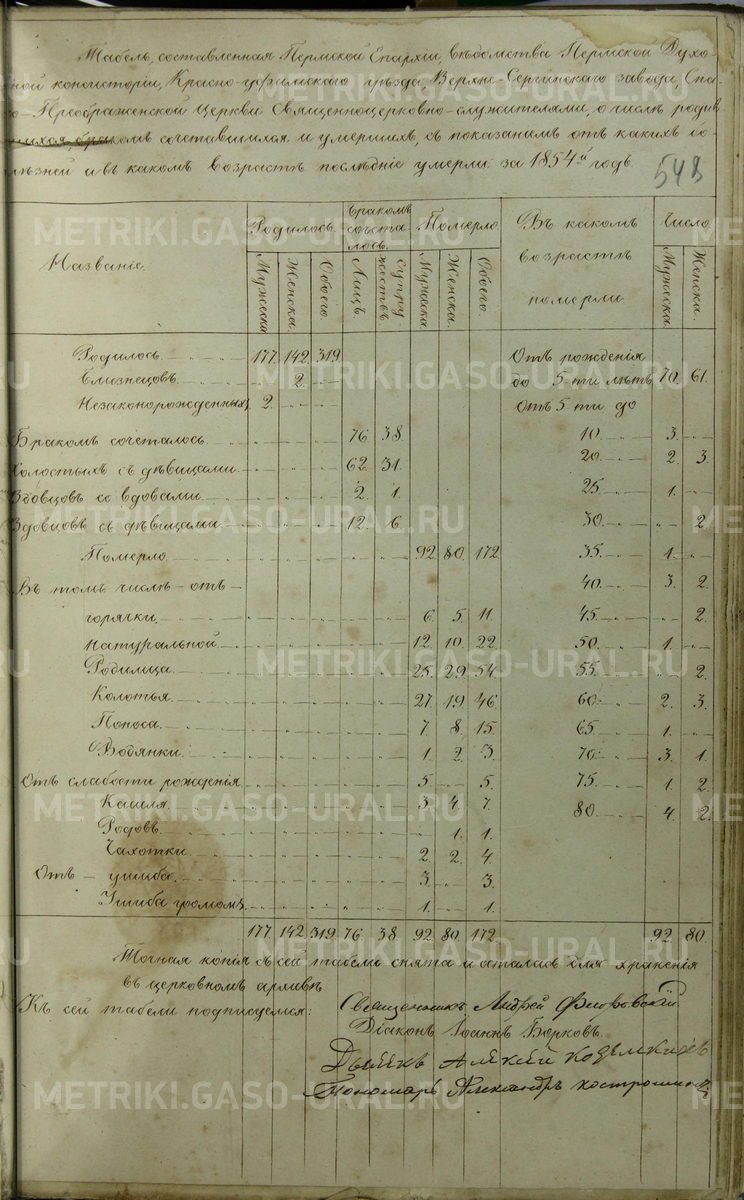 Табель, составленная Пермской Епархіи, вѣдомства Пермской Духо-
ной консисторіи, Красно-уфимскаго уѣзда, Верхне-Сергинскаго завода, Спа-
о-Преображенской Церкви Священноцерковно-служителями, о числѣ родив
шихся, бракомъ сочетавшихся и умершихъ, съ показаніемъ отъ какихъ бо-
лѣзней и въ какомъ возрастѣ послѣдніе умерли за 1854й годъ.
548
Названіе. Родилось. Бракомъ сочета лось. Померло Въ какомъ возрастѣ померли Число
Мужеска Женска. Обоего. Лицъ. Супру жествъ Мужеска Женска. Обоего. Мужеска. Женски.
Родилось 177. 142. 319. Отъ рожденія
Близнецовъ. 2. до 5-ти лѣтъ 70. 61.
Незаконорожденныхъ 2. Отъ 5 ти до
Бракомъ сочеталось 76. 38. 10. 3.
Холостыхъ съ дѣвицами 62. 31. 20. 2. 3.
Вдовцовъ со вдовами 2. 1. 25. 1.
Вдовцовъ съ дѣвицами 12. 6. 30. 2.
Померло 92. 80. 172. 35. 1.
Въ томъ числѣ – отъ – 40. 3. 2.
горячки 6. 5. 11. 45. 2.
Натуральной 12. 10. 22. 50. 1.
Родимца 25. 29. 54. 55. 2.
Колотья. 27. 19. 46. 60. 2. 3.
Поноса 7. 8. 15. 65. 1.
Водянки 1. 2. 3. 70. 3. 1.
Отъ слабости рожденія 5. 5. 75. 1. 2.
Кашля. 3. 4. 7. 80. 4. 2.
Родовъ. 1. 1.
Чахотки 2. 2. 4.
Отъ – ушиба. 3. 3.
Ушиба громомъ 1. 1.
177. 142. 319. 76. 38. 92. 80. 172. 92. 80.
Точная копія съ сей табели снята и осталась для храненія
въ церковномъ архивѣ.
Къ сей табели подписуемся: Священникъ Андрей Флоровскій
Діаконъ Іоаннъ Борковъ.
Дьячекъ Алексій
Пономарь Александръ
METRIKI.GASO-URAL.RU